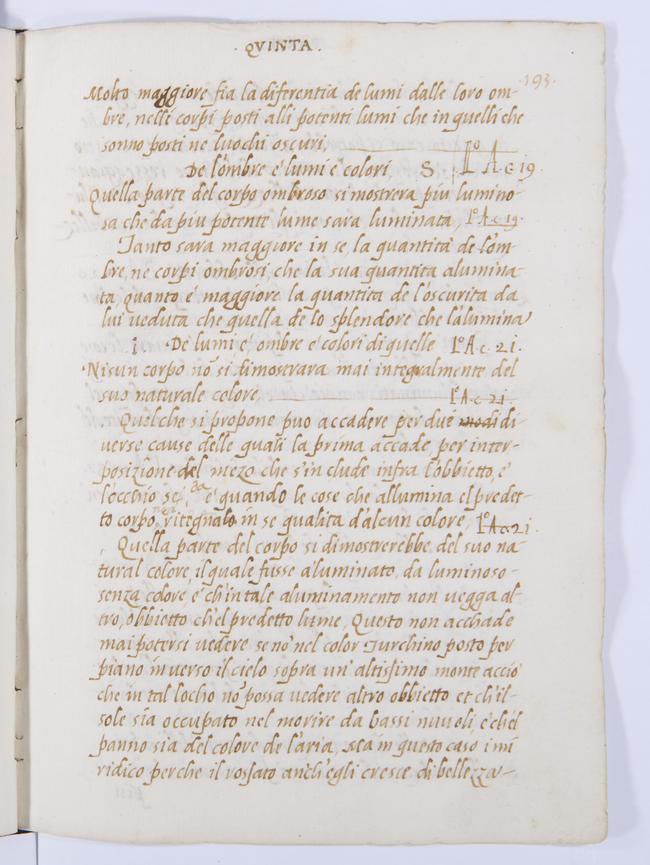 · QVINTA ·
193.
Molto maggiore fia la diferentia de lumi dalle loro om-
bre, nelle corpi posti alli potenti lumi che in quelli che
sonno posti ne luochi oscuri.
De l'ombre e' lumi e' colori
Quella parte del corpo ombroso si mostrera piu lumino-
sa che da piu potente lume sara luminata,
Tanto sara maggiore in se, la quantita de l'om-
bre, ne corpi ombrosi, che la sua quantita alumina-
ta, quanto e' maggiore la quantita de l'oscurita da
lui veduta che quella de lo splendore che l'alumina
De lumi, e' ombre e' colori di quelle
·Nisun corpo no si dimosterara mai integralmente del
suo naturale colore,
Quel che si propone puo accadere per due modi di-
verse cause delle quali la prima accade, per inter-
posizione del mezo che s'in clude infra l'obbietto, e'
l'occhio e' quando le cose che allumina el predet-
to corpo, in se qualita d'alcun colore,
Quella parte del corpo si dimostrerebbe del suo na-
tural colore, il quale fusse a'luminato, da luminoso-
senza colore, e' ch'in tale aluminamento non vegga al-
tro, obbietto ch'el predetto lume, Questo non acchade
mai potersi vedere se no' nel color Turchino posto per
piano inverso il cielo sopra un' altissimo monte accio'
che in tal locho no' possa vedere altro obbietto et ch'il-
sole sia occupato nel morire da bassi nuvoli, e' ch'el
panno sia del colore de l'aria, Ma in questo caso i mi
ridico perche il rossato anch'egli cresce di bellezza-